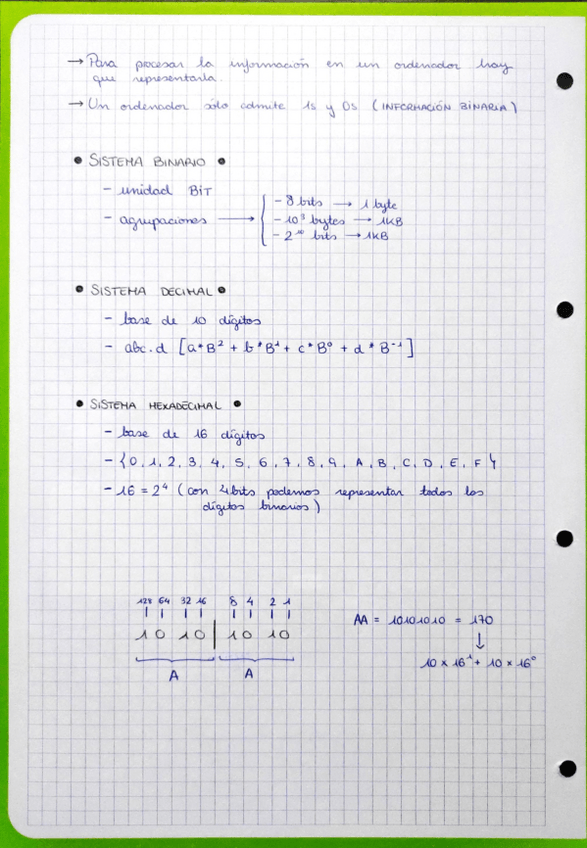 → Para procesar la información en un ordenador hay
que representarla.
→ Un ordenador sólo admite 1s y 0s (INFORMACIÓN BINARIA)
• SISTEMA BINARIO •
- unidad BiT
- agrupaciones → { - 8 bits → 1 byte
- 10³ bytes → 1KB
- 2¹⁰ bits → 1KB
• SISTEMA DECIMAL •
- base de 10 dígitos
- abc.d [a*B² + b*B¹ + c*B⁰ + d*B⁻¹]
• SISTEMA HEXADECIMAL •
- base de 16 dígitos
- {0, 1, 2, 3, 4, 5, 6, 7, 8, 9, A, B, C, D, E, F}
- 16 = 2⁴ (con 4 bits podemos representar todos los
dígitos binarios)
128 64 32 16 8 4 2 1
1 0 1 0 | 1 0 1 0
A A
AA = 10101010 = 170
↓
10 × 16¹ + 10 × 16⁰